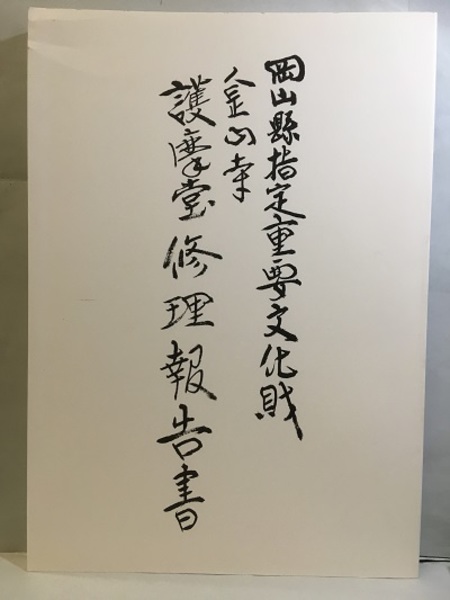 岡山縣指定重要文化財
金山寺
護摩堂修理報告書